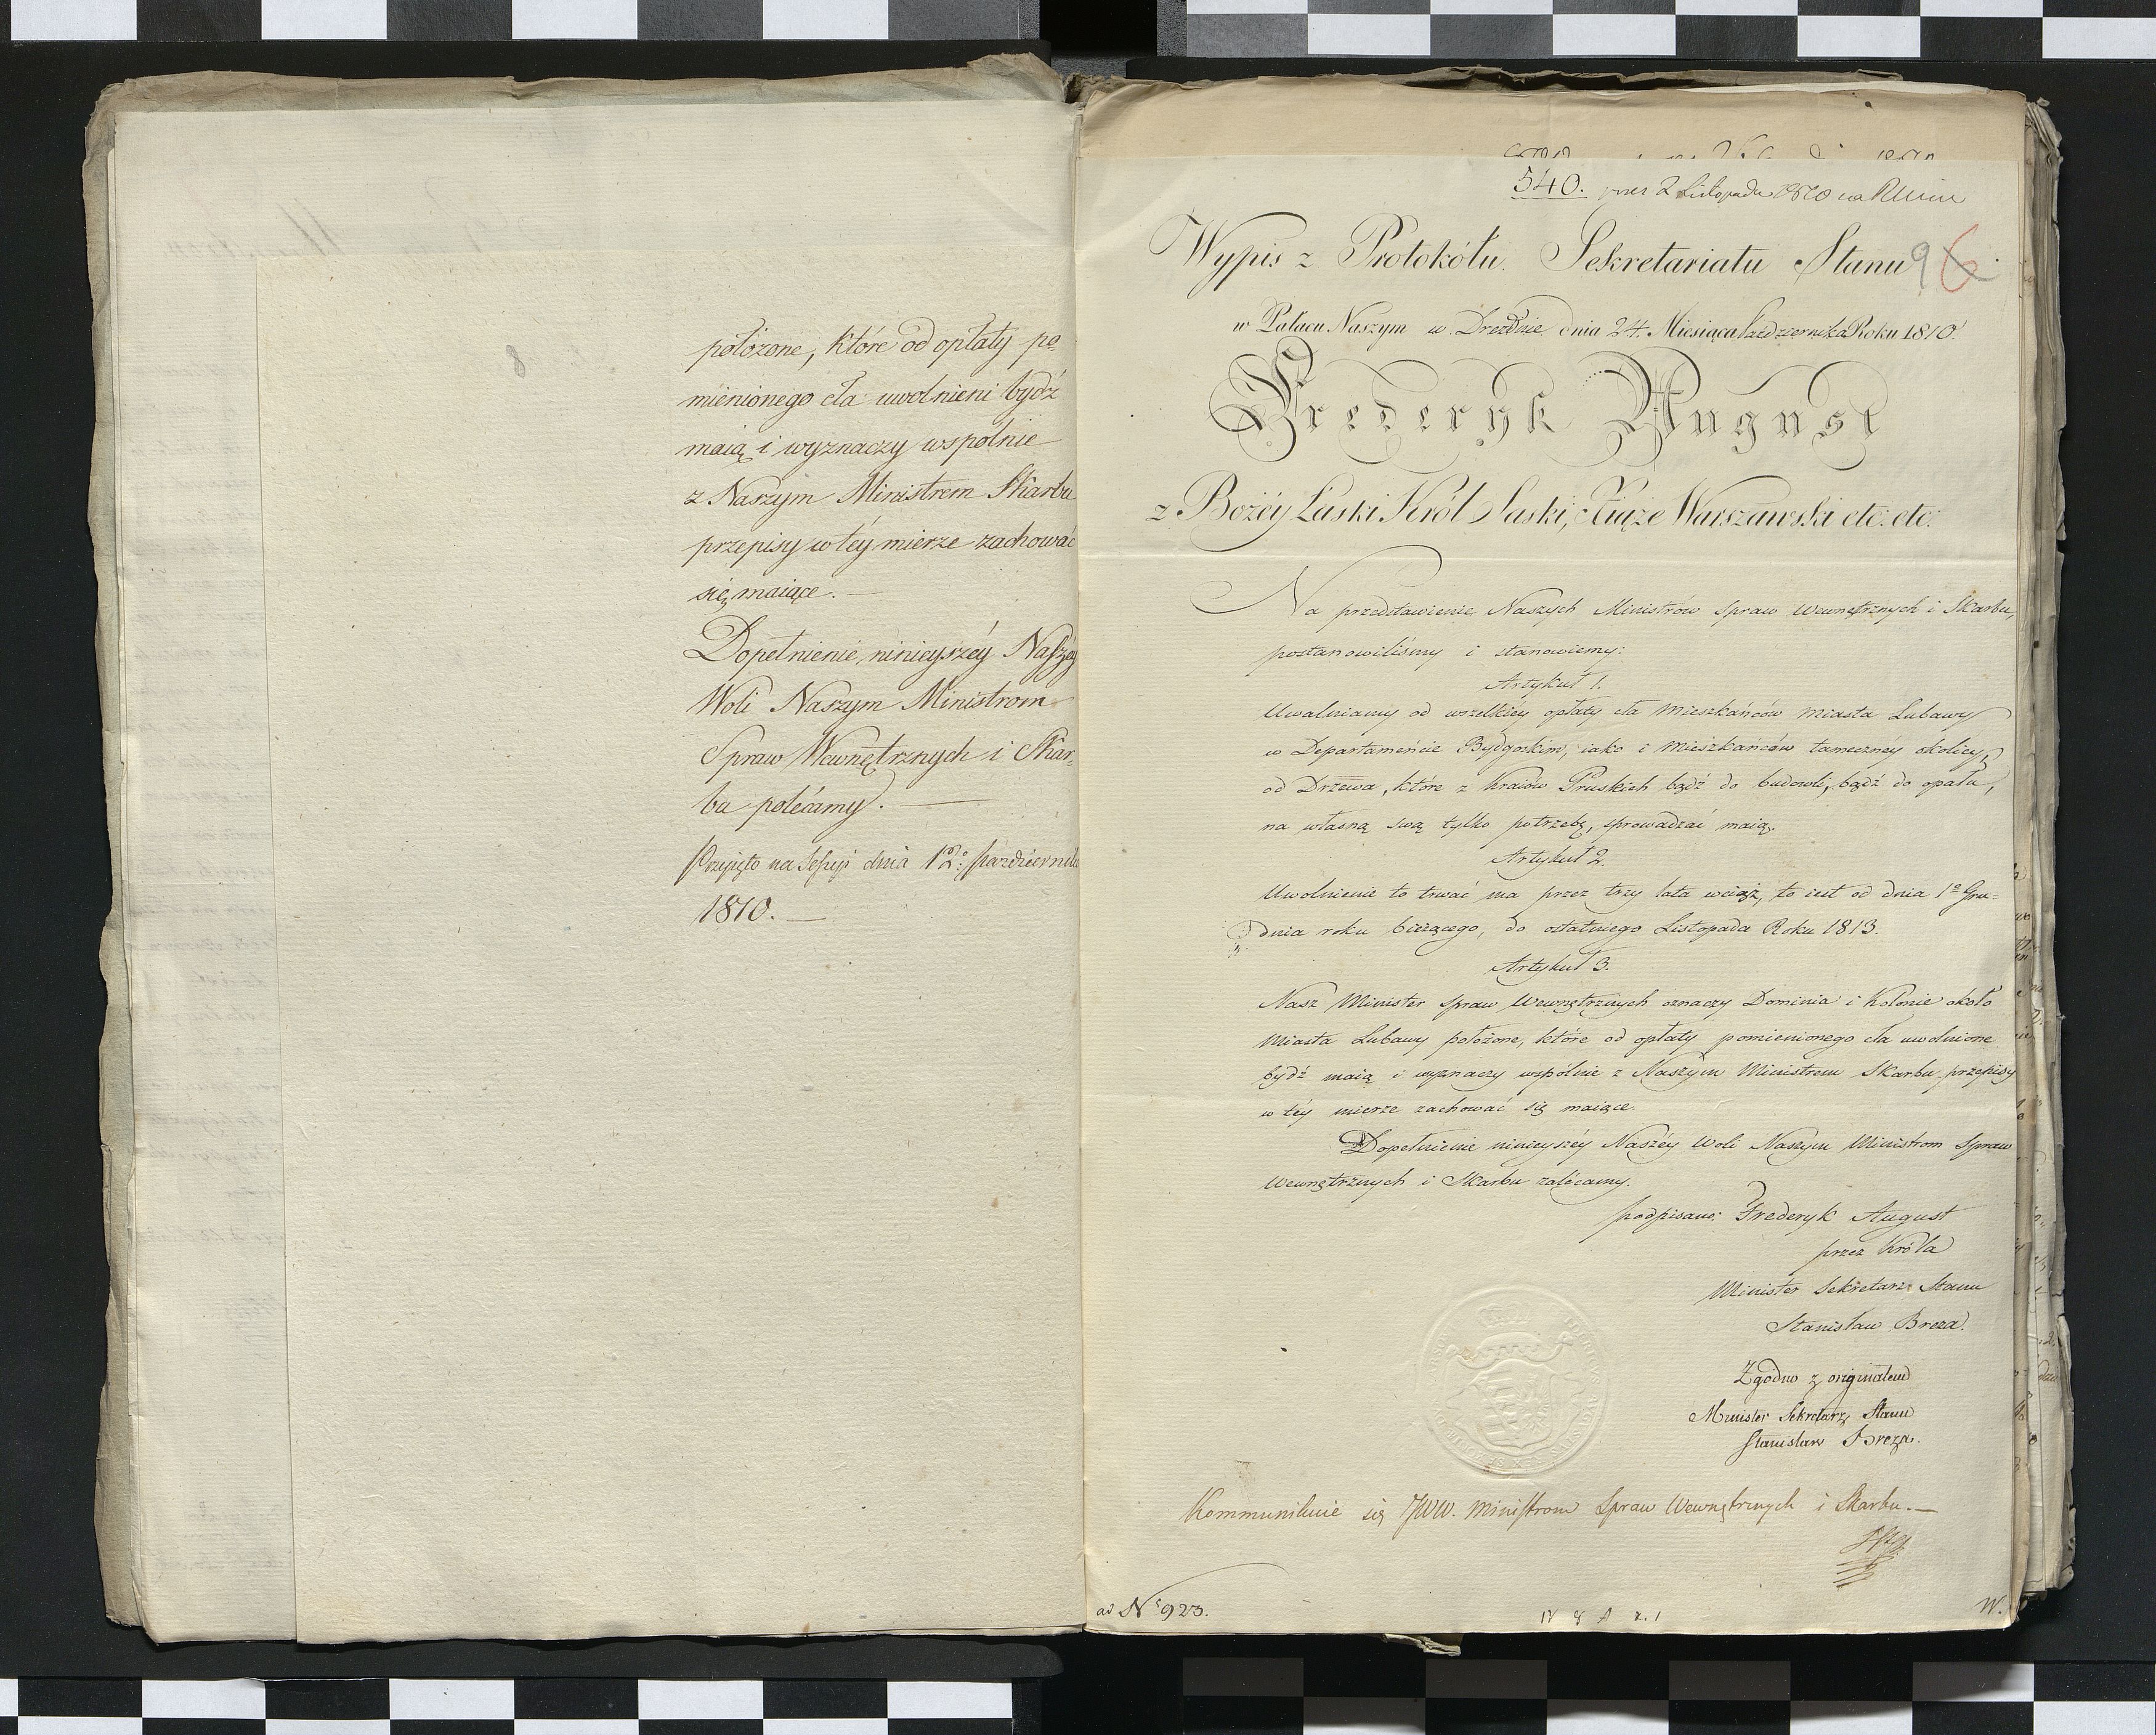 położone, które od opłaty po-
mienionego cła uwolnieni bydź
maią i wyznaczy wspólnie
z Naszym Ministrem Skarbu
przepisy w téy mierze zachować
się maiące. —
Dopełnienie ninieyszéy Naszéy
Woli Naszym Ministrom
Spraw Wewnętrznych i Skar-
bu polécamy. —
Przyięto na Sessyi dnia 12º Październik
1810. —
8
540. 2 Listopada 1810
Wypis z Protokółu Sekretariatu Stanu
9 6
w Pałacu Naszym w Dreźnie dnia 24. Miesiąca Października Roku 1810.
Frederyk August
z Bożéy Łaski Król Saski, Xiąże Warszawski etc. etc.
Na przedstawienie Naszych Ministrów Spraw Wewnętrznych i Skarbu,
postanowiliśmy i stanowiemy:
Artykuł 1.
Uwalniamy od wszelkiey opłaty cła Mieszkańców Miasta Lubawy
w Departamencie Bydgoskim, iako i Mieszkańców tameczney okolicy,
od Drzewa, które z Kraiów Pruskich bądź do budowli, bądź do opału,
na własną swą tylko potrzebę, sprowadzać maią.
Artykuł 2.
Uwolnienie to trwać ma przez trzy lata wciąż, to iest od dnia 1º Gru-
dnia roku bieżącego, do ostatniego Listopada Roku 1813.
Artykuł 3.
Nasz Minister Spraw Wewnętrznych oznaczy Dominia i Kolonie około
Miasta Lubawy położone, które od opłaty pomienionego cła uwolnione
bydź maią i wyznaczy wspólnie z Naszym Ministrem Skarbu przepisy
w téy mierze zachować się maiące.
Dopełnienie ninieyszéy Naszéy Woli Naszym Ministrom Spraw
Wewnętrznych i Skarbu zalécamy.
podpisano: Frederyk August
przez Króla
Minister Sekretarz Stanu
Stanisław Breza.
Zgodno z originałem
Minister Sekretarz Stanu
Stanisław Breza.
Kommunikuie się JWW. Ministrom Spraw Wewnętrznych i Skarbu. —
ad Nº 923.
W.